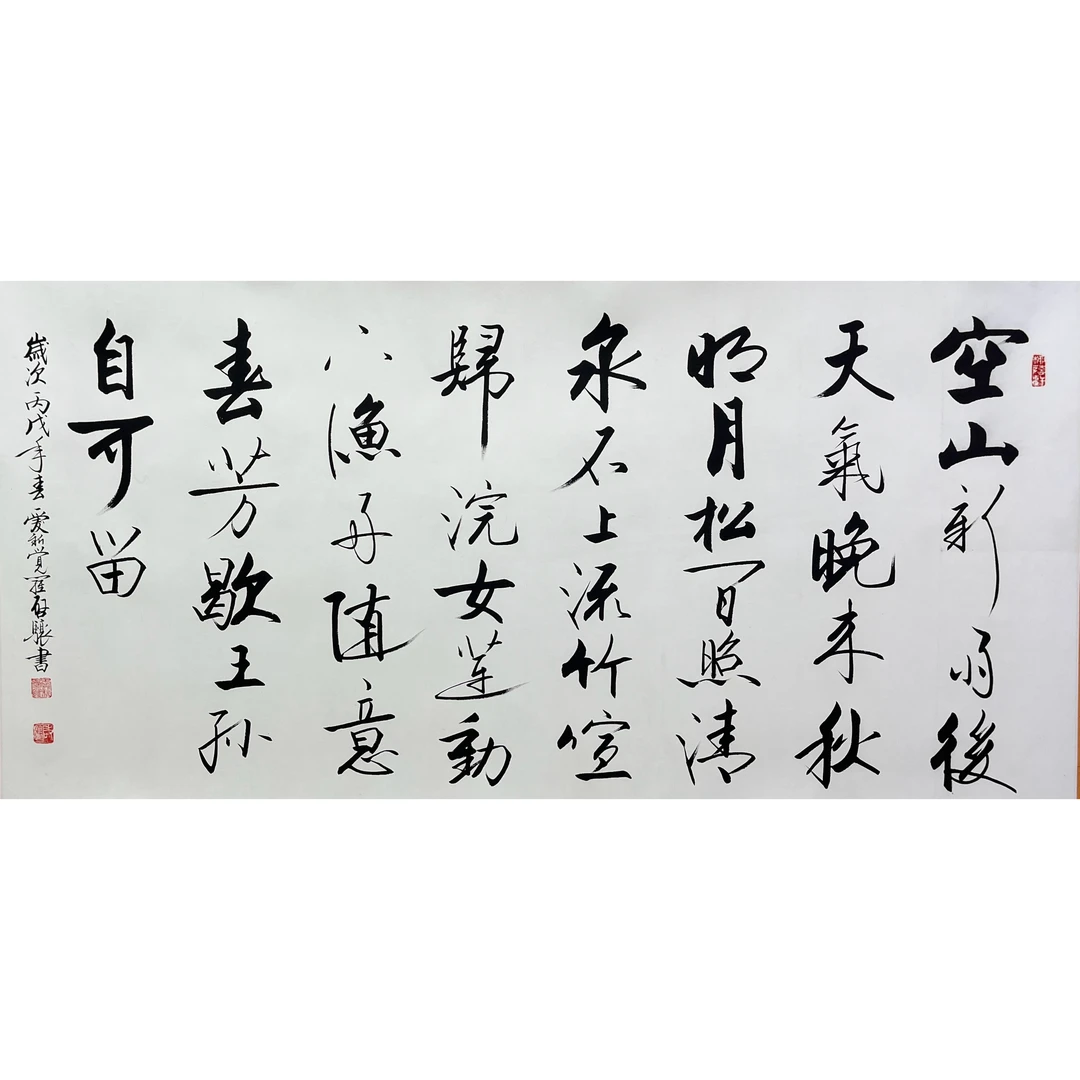 空山新雨後
天氣晚来秋
明月松間照清
泉石上流竹喧
歸浣女蓮動
下漁舟随意
春芳歇王孫
自可留
歲次丙戌年春愛新覺羅啟驤書